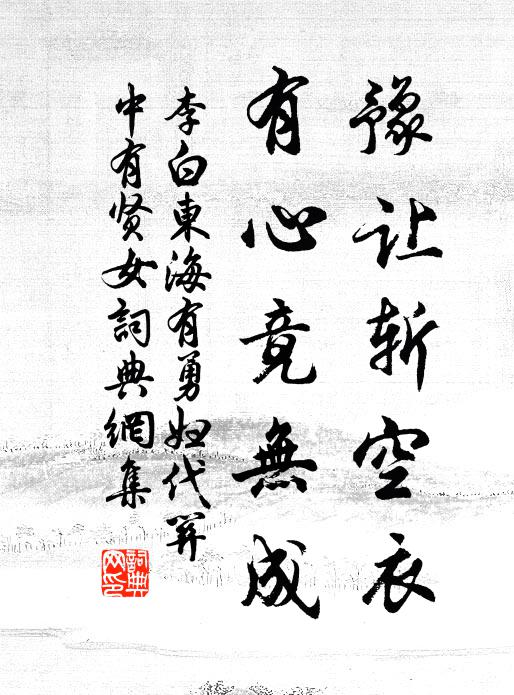 豫让斩空衣
有心竟無成
李白東海有勇妇代関
中有贤女詞典網集
詞典网印